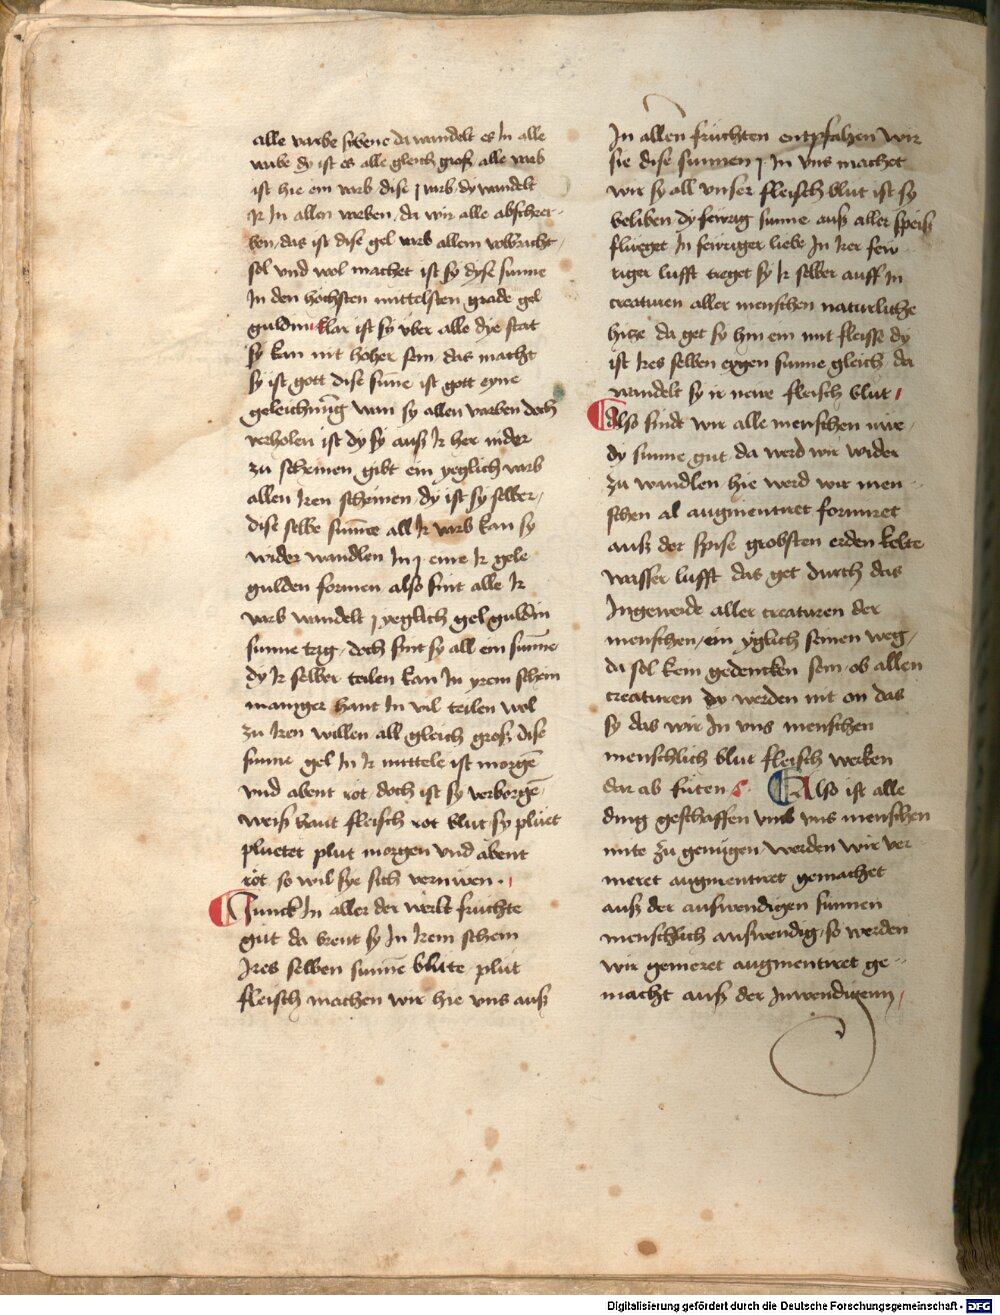 alle varbe sibene da wandelt es In alle
varbe dy ist es alle gleich groß alle varb
ist hie ein varb dise j varb dy wandelt
Ir In allen varben, da wir alle abschrei-
ben, das ist dise gel varb allem volbracht,
sol und wol machet ist sy dyse sunne
In den hochsten mittelsten grade gel
guldin klar ist sy vber alle dye stat
sy kan nit hoher sein das macht
sy ist gott dise sune ist gott eyne
geleichnu̅g wan sy allen varben doch
verholen ist dy sy auß Ir her nider
zu scheinen gibt ein yeglich varb
allen Iren scheinen, dy ist sy selber,
dise selbe sun̅e all Ir varb kan sy
wider wandlen In j eine Ir gele
gulden formen also sint alle Ir
varb wandelt j yeglich gel guldin
sunne trg, doch sint sy all ein sun̅e
dy Ir selber teilen kan In yrem schein
maniger hant In vil teilen wol
zu Iren willen all gleich groß dise
sunne gel In Ir mittele ist morge̅
vnd abent rot, doch ist sy verborge̅,
weis haut fleisch rot blut sy pluet
pluetet plut morgen vnd abent
rot so wil sye sich vernwen.
Junck In aller der werlt fruchte
gut da brent sy In Irem schein
Ires selben sun̅e blute plut
fleisch machen wir hie vns auß
In allen fruchten entpfahen wir
sie dise sunnen j In vns machet
wir sy all vnser fleisch blut ist sy
beliben dy feirig sunne auß aller speis
flueget In feiriger liebe In Irer few
riger lufft treget sy Ir selber auff In
creaturen aller menschen naturliche
hitze da get sy hin ein mit fleisse dy
ist Ires selben eygen sunne gleich da
wandelt sy ir neue fleisch blut
Also sindt wir alle menschen
dy sunne gut, da werd wir wider
zu wandlen hie werd wir men-
schen al augmentiret formiret
auß der spise grobsten erden kelte
wasser lufft das get durch das
Ingeweide aller creaturen der
menschen, ein yglich seinen weg,
da sol kein gedencken sein ob allen
creaturen dy werden nit on das
sy das wir In vns menschen
menschlich blut fleisch wecken
dar ab futen Also ist alle
ding geschaffen vmb vns menschen
mite zu genugen werden wir ver
meret augmentiret gemachet
auß der auswendigen sunnen
menschlich auswendig, so werden
wir gemeret augmentiret ge-
macht auß der Inwendigenn
Digitalisierung gefördert durch die Deutsche Forschungsgemeinschaft - DFG